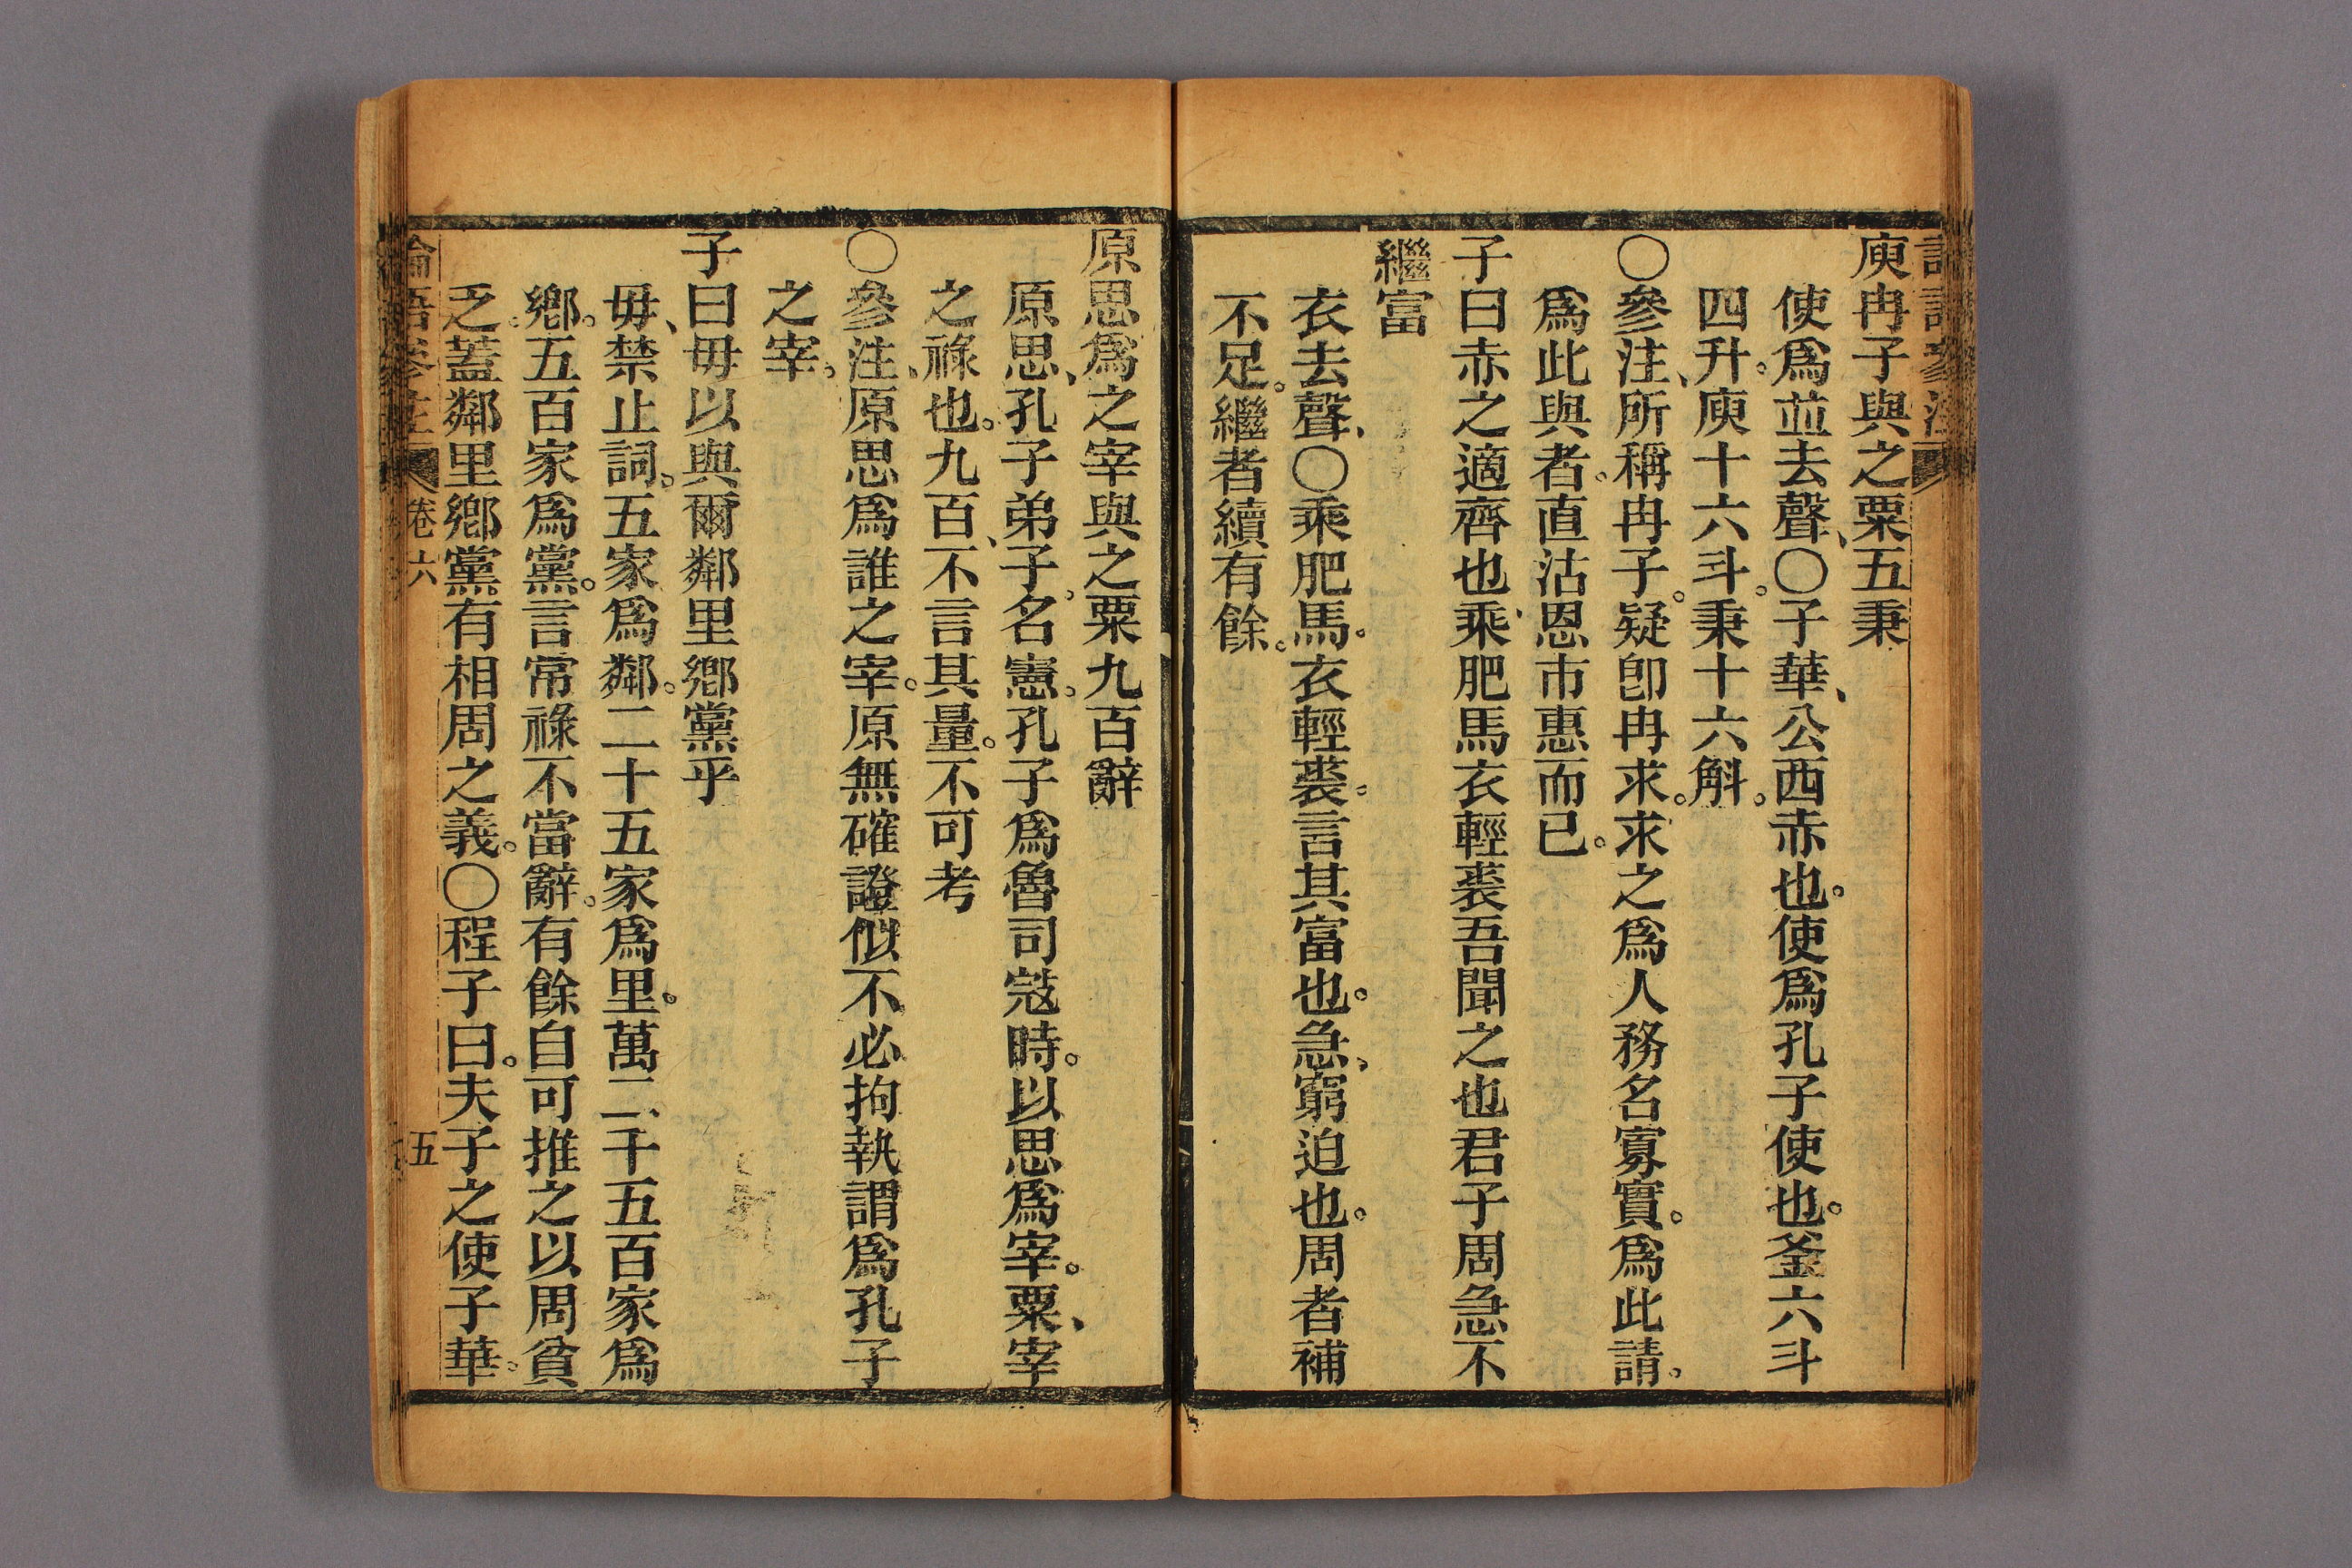 庾冉子與之粟五秉
使爲並去聲、○子華、公西赤也。使爲孔子使也。釜六斗
四升。庾十六斗。秉十六斛。
○參注、所稱冉子。疑卽冉求。求之爲人務名寡實。爲此請。
爲此與者。直沽恩市惠而已。
子曰赤之適齊也乘肥馬衣輕裘吾聞之也君子周急不
繼富
衣去聲、○乘肥馬。衣輕裘。言其富也。急、窮迫也。周者補
不足。繼者續有餘。
原思爲之宰與之粟九百辭
原思、孔子弟子。名憲。孔子爲魯司寇時。以思爲宰。粟、宰
之祿也。九百、不言其量。不可考
○參注、原思爲誰之宰。原無確證似不必拘執謂爲孔子
之宰。
子曰毋以與爾鄰里鄉黨乎
毋、禁止詞。五家爲鄰。二十五家爲里。萬二千五百家爲
鄉。五百家爲黨。言常祿不當辭。有餘自可推之以周貧
乏。蓋鄰里鄉黨有相周之義。○程子曰。夫子之使子華。
論語參注 卷六 五